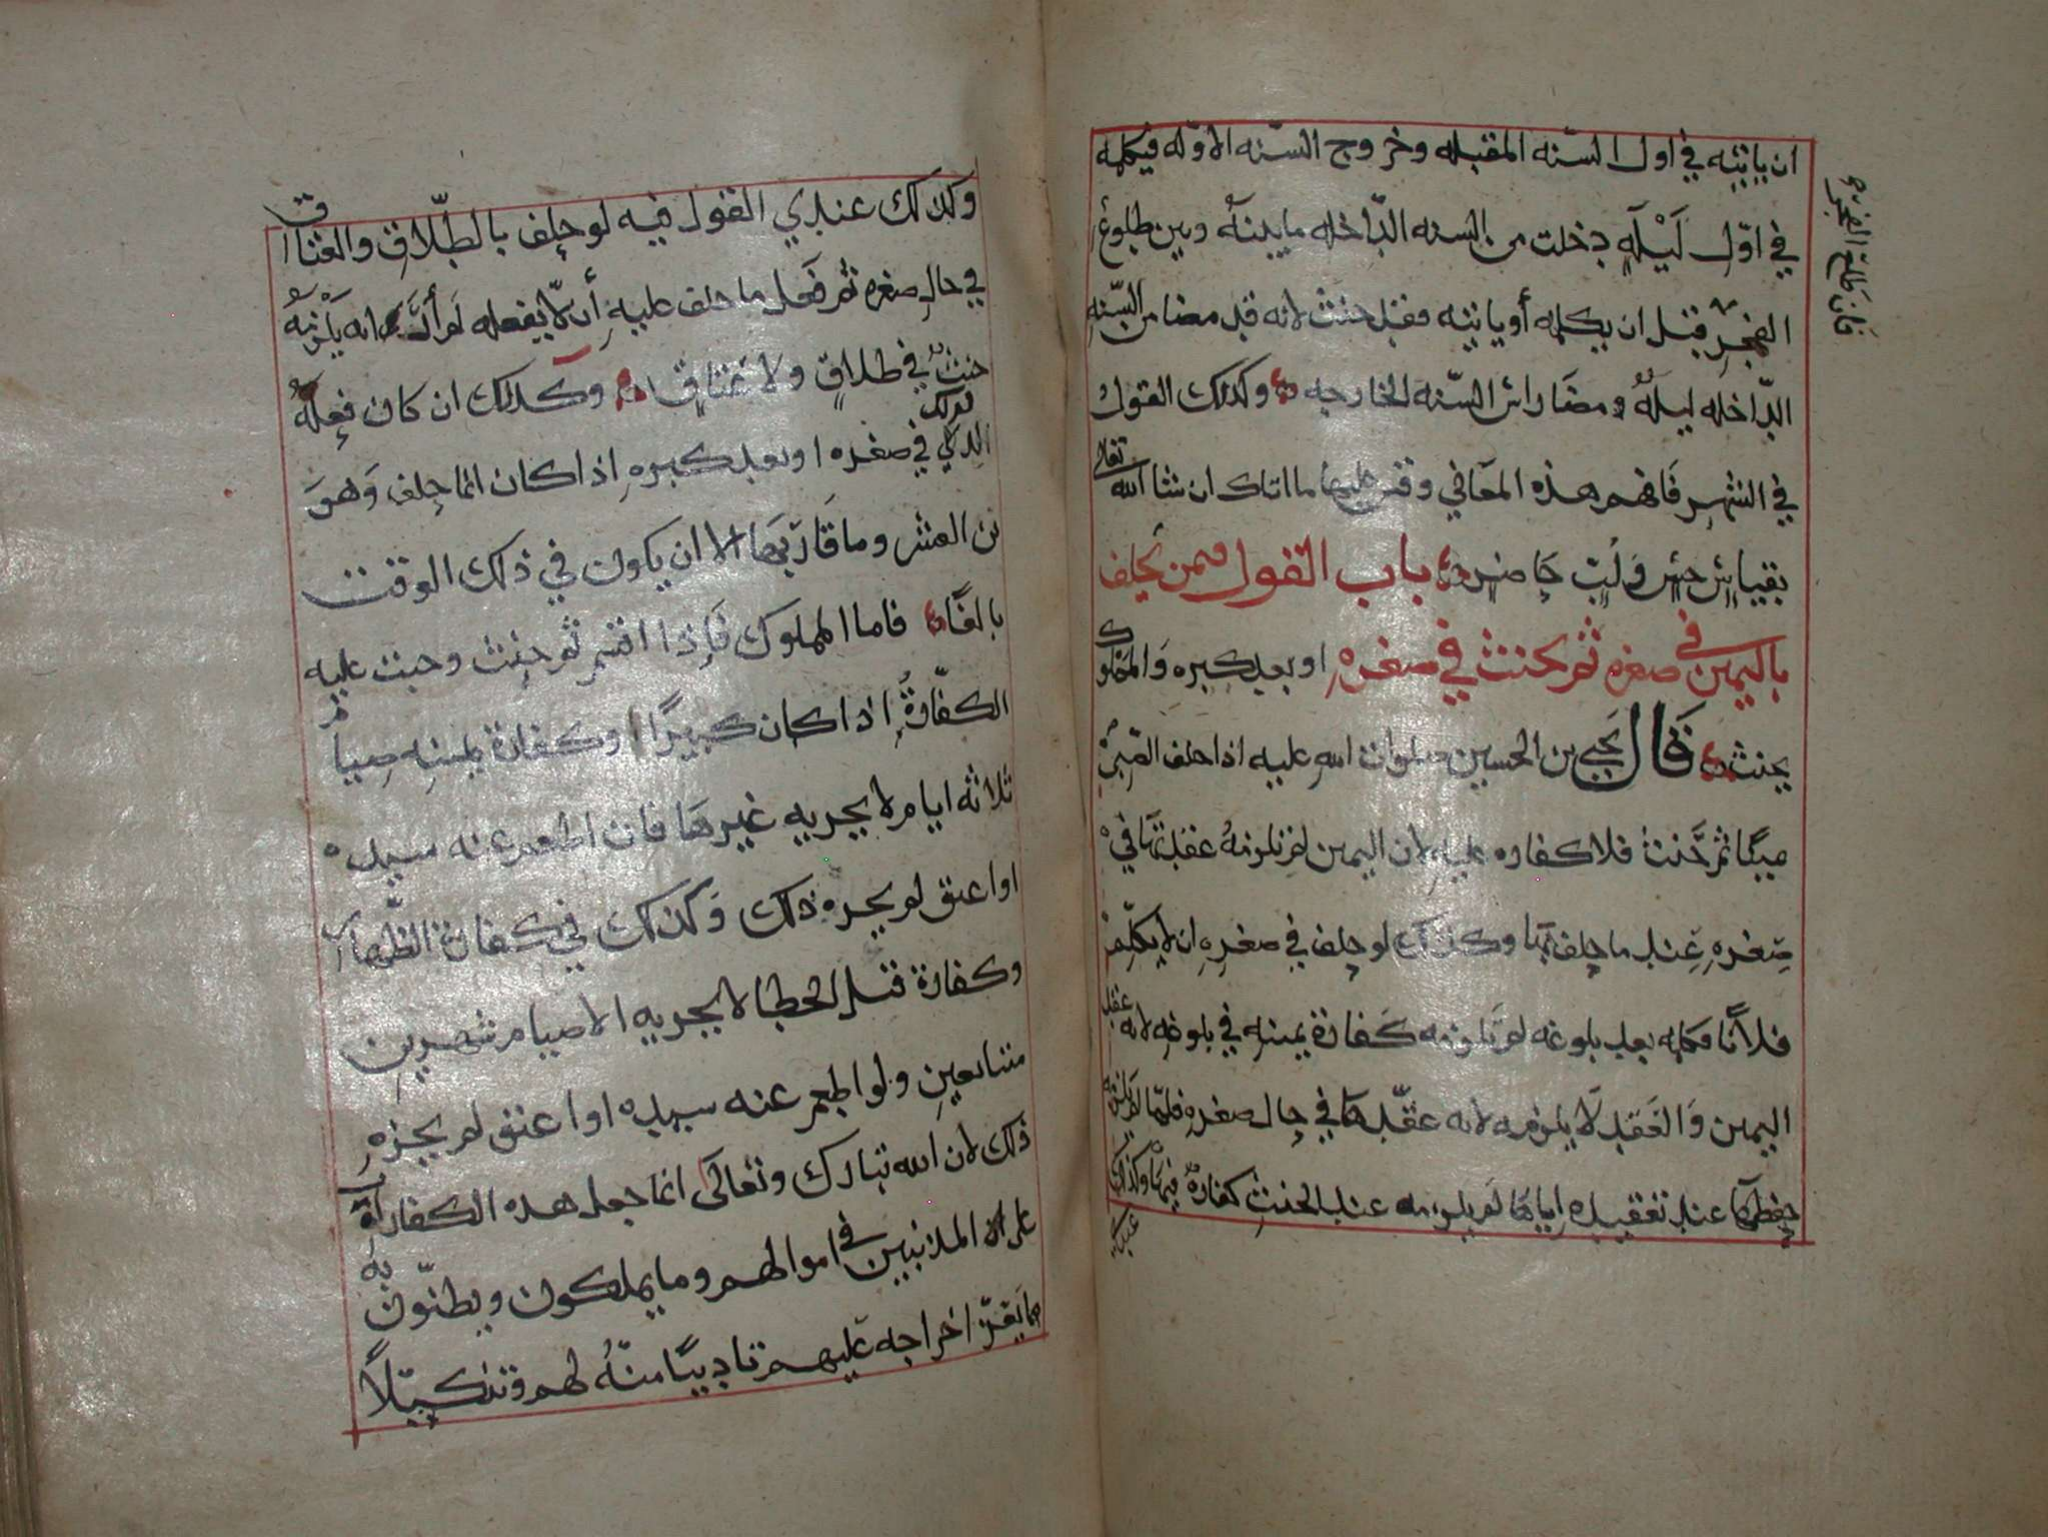 ان ياتيه في اول السنه المقبله وخروج السنه الاوله فيكلمه
في اوّل لَيْلَةٍ دخلت من السنه الدّاخله ما بينهُ وبين طلوع
الفجرِ قبل ان يكلمه أو ياتيه فقد حنث لانه قد مضا من السّنه
الدّاخله ليلهٌ ومضَا راس السّنه الخارجه وكذلك القول
في الشهرِ فَافهم هذه المعَاني وقس عليها ما اتاك ان شا الله تعالى
بقياسٍ حسنٍ وَلُبٍ حاضرٍ باب القول فيمن يحلف
باليمين في صغره ثم يحنث في صغرهِ او بعد كبره وَالمملوك
يحنث قَال يحيى بن الحسين صلوات الله عليه اذا حلف الصّبيُّ
صبيًّا ثم حَنث فلا كفاره عليهِ لان اليمين لم تلزمهُ عقدتهَا في
صِغرهِ عِند ما حلف بها وكذلك لو حلف في صغرهِ ان لا يكلّم
فلانًا فكلمه بعد بلوغه لم تلزمه كفارة يمينه في بلوغه لانه عقد
اليمين وَالعَقد لَا يلزمه لانه عقّدها في حال صغرهِ فلمّا لم يلزمه
حفظهَا عند تعقيدهِ اياهَا لم يلزمه عند الحنث كفارةٌ فيهَا وكذلك
عندي
فان طلع الفجر
وكذلك عندي القول فيه لو حلف بالطّلاق والعتاق
في حال صغره ثم فعل ما حلف عليهِ أن لّا يفعله لم أرَ انه يَلْزمُهُ
حنثٌ في طلاقٍ ولا عَتاقٍ وكذلك ان كان فعلهُ لذلك
الذي في صغره او بعد كبرهِ اذا كان انما حلف وَهوَ
بن العشر وما قَاربهَا الا ان يكون في ذلك الوقت
بالغًا فاما المملوك فَإذا اقسم ثم حنث وجبت عليه
الكفّارةُ إذا كان كبيرًا وكفارة يمينه صِيام
ثلاثه ايام لا يجزيه غيرهَا فان اطعم عنه سيده
او اعتق لم يجزه ذلك وَكذلك في كفارة الظّهار
وكفارة قتل الخطا لا يجزيه الا صيام شهرين
متتابعين ولو اطعم عنه سيده او اعتق لم يجزهِ
ذلك لان الله تبارك وتعالى انما جعل هذه الكفارات
على المذنبين في اموالهم وما يملكون ويظنّون به
مما يَعزّ اخراجه عَليهم تاديبًا منهُ لهم وتنكيلًا